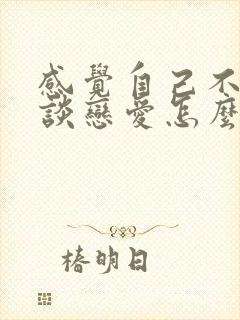 感覺自己不
談戀愛怎麼
椿明日